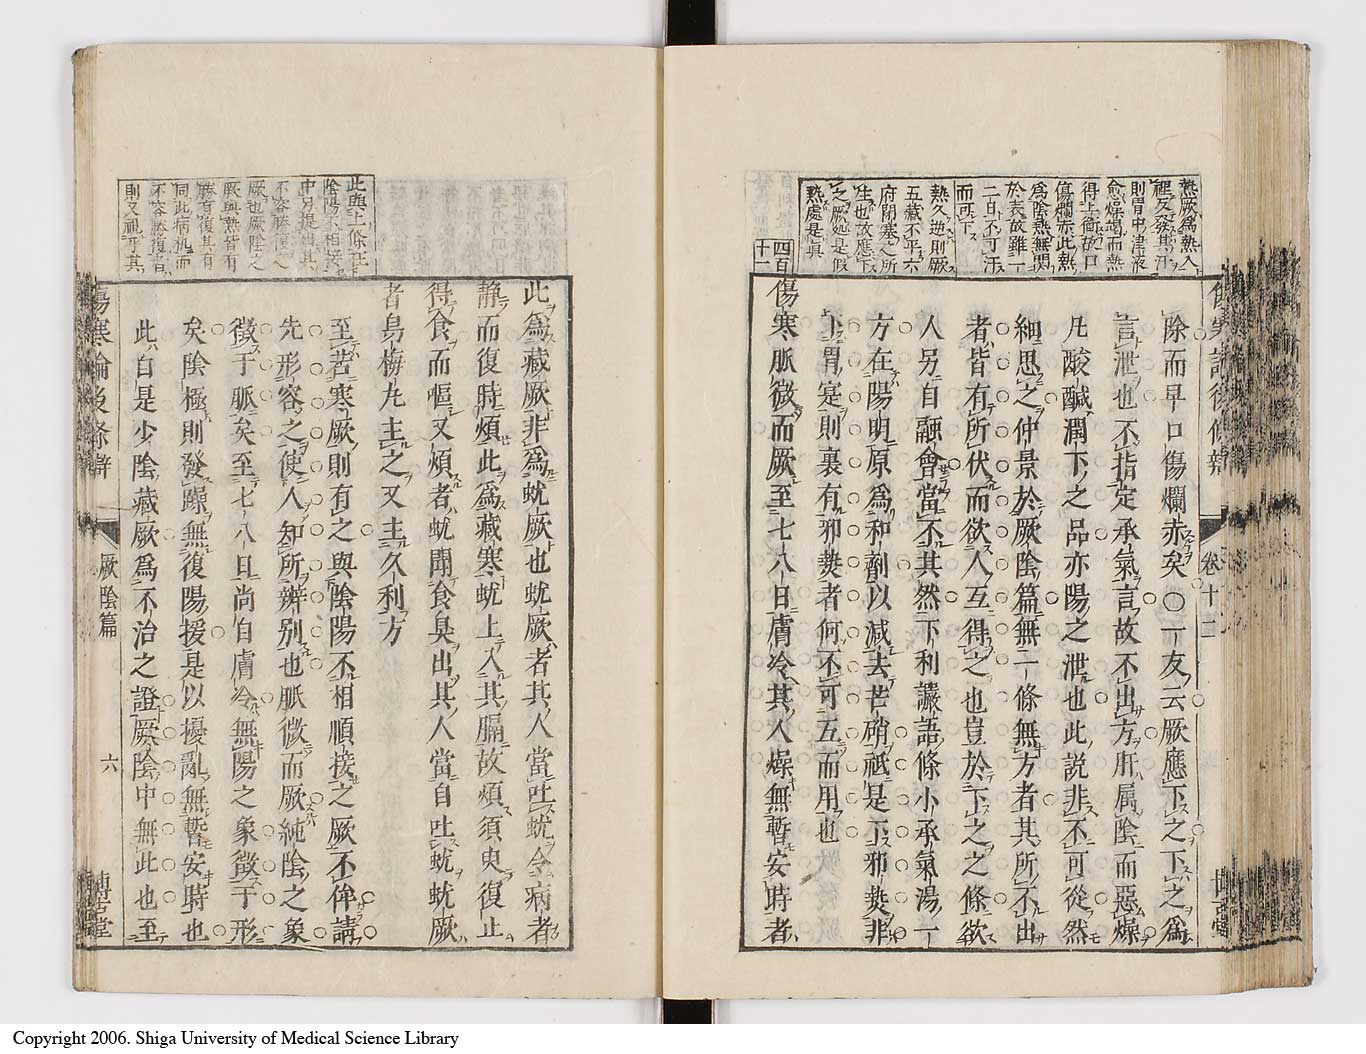 熱厥爲熱入
裡反發其汗
則胃中津液
愈燥竭而熱
得上衝故口
傷爛赤此熱
爲陰熱無関
於表故雖一
二日不可汗
而可下
熱久逆則厥
五藏不平六
府閉塞之所
生也故應下
之厥処是假
熱處是真
四百
十一
除而早口傷爛赤矣〇一友云厥應下之下之爲
言泄也不指定承氣言故不出方肝属陰而惡燥
凡酸鹹潤下之品亦陽之泄也此説非不可從然
細思之仲景於厥陰篇無一條無方者其所不出
者皆有所伏而欲人互得之也豈於下之之條欲
人另自融會當不其然下利讝語條小承氣湯一
方在陽明原爲和劑以減去芒硝祗是下邪熱非
下胃寔則裏有邪熱者何不可互而用也
傷寒脈微而厥至七八日膚冷其人燥無暫安時者
卷十二
此與上條証
陰陽不相接
中另提出其
不容勝復之
厥也厥陰之
厥與熱皆有
勝有復其有
同此病机而
不容勝復者
則又視乎其
此爲藏厥非爲蚘厥也蚘厥者其人當吐蚘令病者
静而復時煩此爲藏寒蚘上入其膈故煩須臾復止
得食而嘔又煩者蚘聞食臭出其人當自吐蚘蚘厥
者烏梅丸主之又主久利方
至若寒厥則有之與陰陽不相順接之厥不侔請
先形容之使人知所辨别也脈微而厥純陰之象
徴于脈矣至七八日尚自膚冷無陽之象徴于形
矣陰極則發躁無復陽援是以擾亂無暫安時也
此自是少陰藏厥爲不治之證厥陰中無此也至
傷寒論後條辨
厥陰篇
六
博古堂
Copyright 2006. Shiga University of Medical Science Library